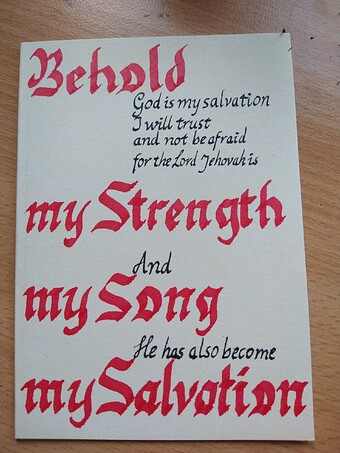 Behold
God is my salvation
I will trust
and not be afraid
for the Lord Jehovah is
my Strength
And
my Song
He has also become
my Salvation